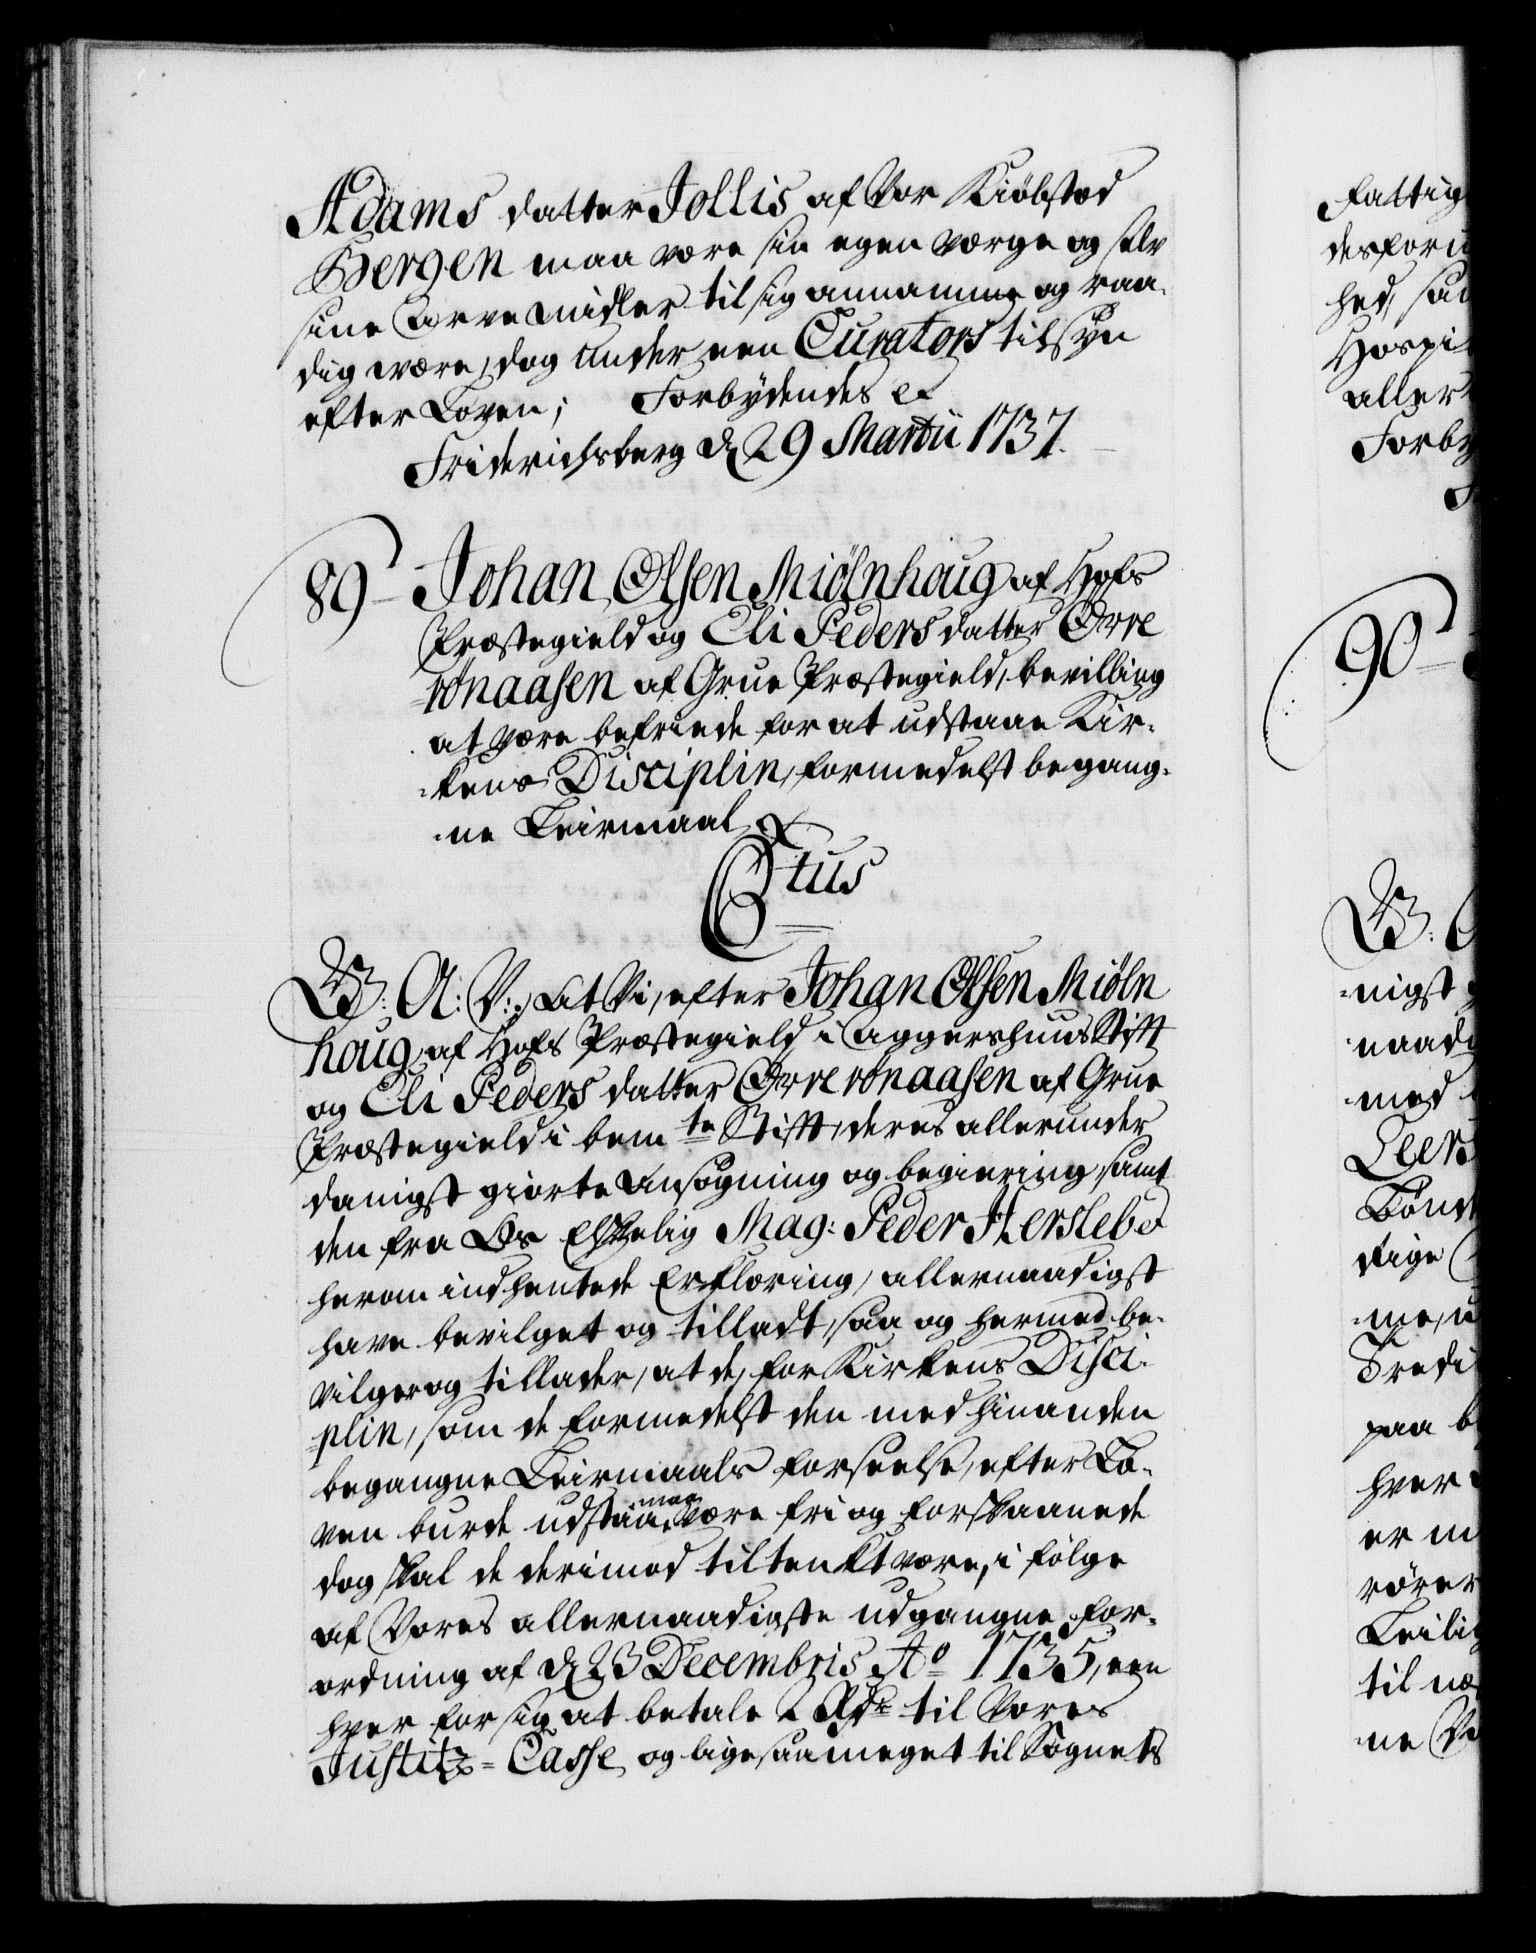 Adams datter Jollis af Vor Kiöbstæd
Bergen maa være sin egen værge og selv
sine Arve midler til sig annamme og raa-
dig være, dog under een Curators tilsyn
efter Loven; Forbydendes etc
Friderichsberg d 29 Martii 1737.
89 Johan Olsen Miölnhoug af Hofs
Præstegield og Eli Pedersdatter Orre
rønaasen af Grue Præstegield, bevilling
at være befriede for at udstaae Kir-
kens Disciplin, formedelst begang-
ne Leirmaal
C6tus
W: A: V:, At Vi, efter Johan Olsen Miöln
houg, af Hofs Præstegield i Aggershuus Stift
og Eli Pedersdatter Orrerønaasen af Grue
Præstegield i bemte Stift, deres allerunder
danigst giorte Ansøgning og begiering, samt
den fra Os Elskelig Mag: Peder Hersleb
herom indhentede Erklæring, allernaadigst
have bevilget og tilladt, saa og hermed be-
vilger og tillader, at de, for Kirkens Disci-
plin, som de formedelst den med hinanden
begangne Leirmaals forseelse, efter Lo-
ven burde udstaa, maa være fri og forskaanede
dog skal de derimod tiltenkt være, i følge
af Vores allernaadigste udgangne for-
ordning af d 23 Decembris Ao 1735, een
hver for sig at betale 2 Rdr til Vores
Justitz-Casse og ligesaa meget til Sognets
fattig
desforu
hed, sa
Hospi
aller
Forby
90
W:
nigst
naad
med
Leer
Bønd
dige
me, u
Fredi
paa b
hver
er m
rører
Leili
til næ
ne V